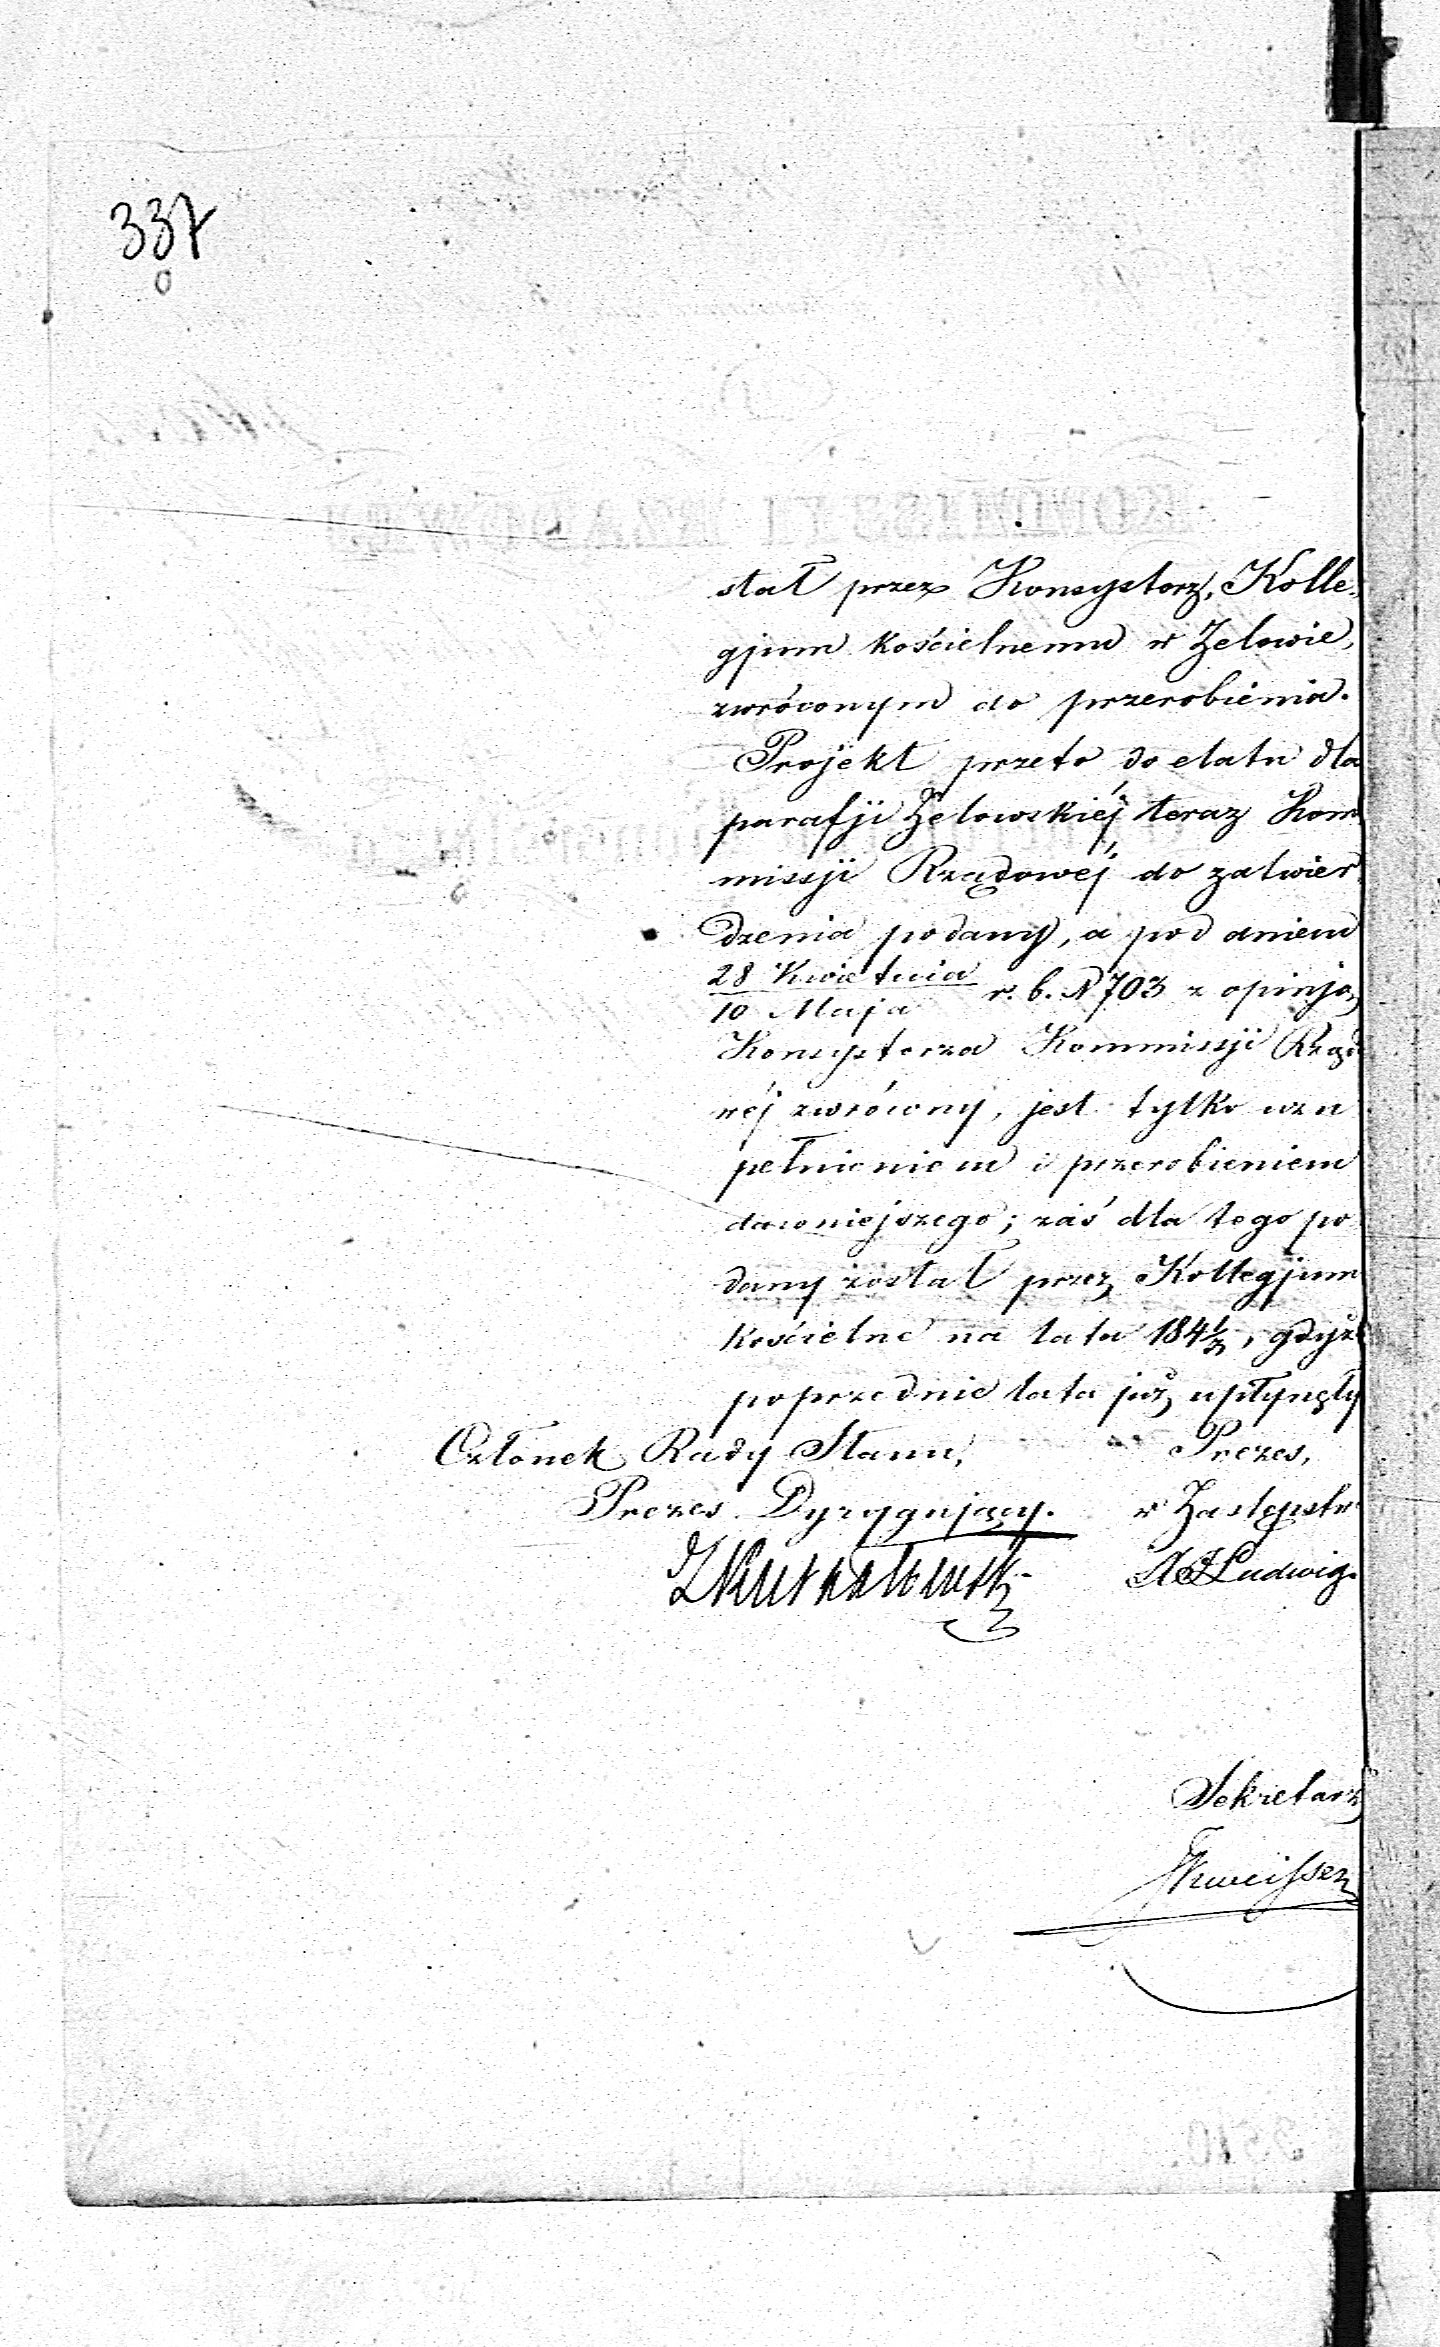 337
stał przez Konsystorz, Kolle-
gjum kościelnemu w Zelowie,
zwróconym do przerobienia.
Projekt przeto do etatu dla
parafji Zelowskiéj teraz Kom
missji Rządowéj do zatwier-
dzenia podany, a pod dniem
28 Kwietnia
10 Maja
r. b. N 703 z opinją
Konsystorza Kommissji Rządo
wéj zwrócony, jest tylko uzu
pełnieniem i przerobieniem
dawniejszego; zaś dla tego po
dany został przez Kollegjum
kościelne na lata 184 1/3, gdyż
poprzednie lata już upłynęły
Członek Rady Stanu, Prezes,
Prezes Dyrygujący. w Zastępstw
Ludwig.
Sekretarz